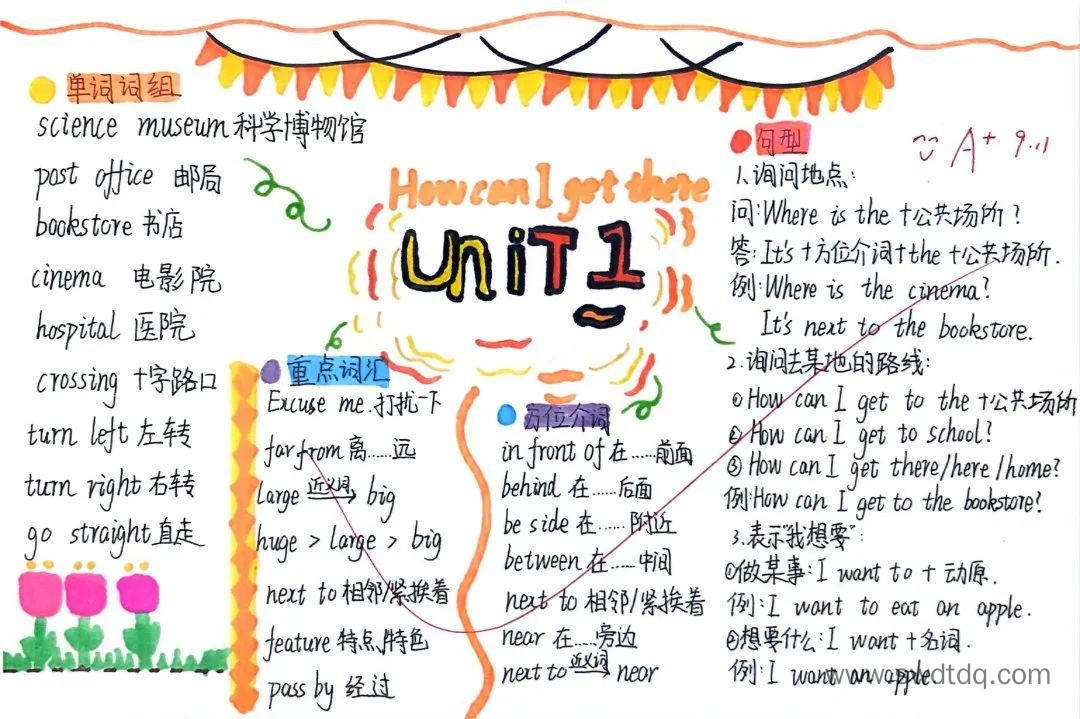 单词词组
science museum 科学博物馆
post office 邮局
bookstore 书店
cinema 电影院
hospital 医院
crossing 十字路口
turn left 左转
turn right 右转
go straight 直走
How can I get there
UniT 1
重点词汇
Excuse me.打扰一下
far from 离……远
large 近义词 big
huge > large > big
next to 相邻/紧挨着
feature 特点/特色
pass by 经过
方位介词
in front of 在……前面
behind 在……后面
be side 在……附近
between 在……中间
next to 相邻/紧挨着
near 在……旁边
next to 近义词 near
句型
A+ 9.11
1.询问地点:
问:Where is the +公共场所?
答:It's +方位介词+the +公共场所.
例:Where is the cinema?
It's next to the bookstore.
2.询问去某地的路线:
①How can I get to the +公共场所
②How can I get to school?
③How can I get there/here/home?
例:How can I get to the bookstore?
3.表示"我想要":
①做某事:I want to + 动原.
例:I want to eat an apple.
②想要什么:I want +名词.
例:I want an apple